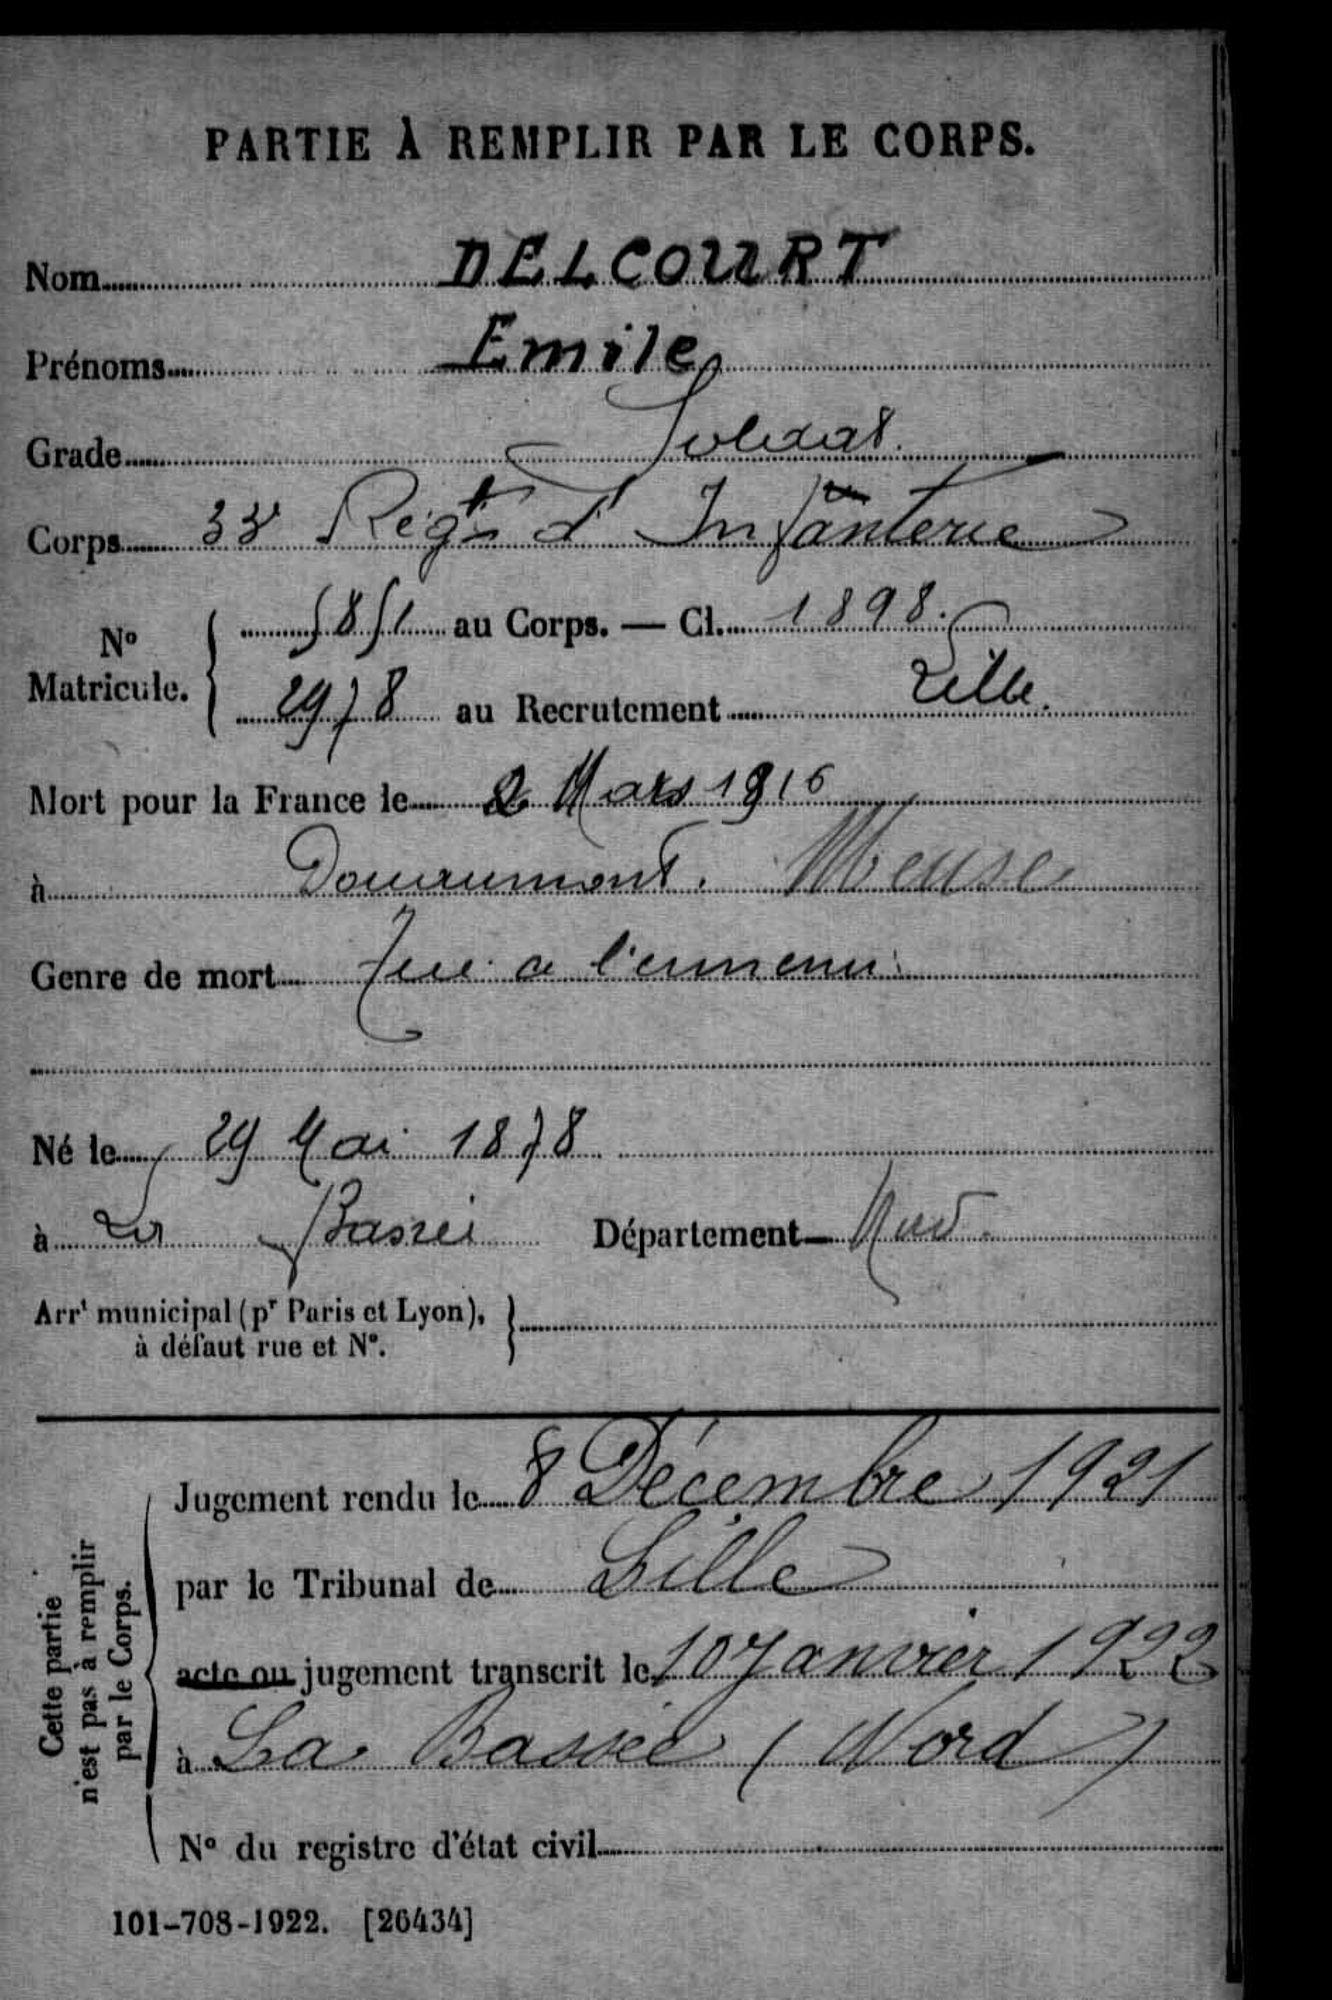 PARTIE À REMPLIR PAR LE CORPS.
Nom DELCOURT
Prénoms Emile
Grade Soldat.
Corps 33e Régt d'Infanterie
N° Matricule. { 5851 au Corps. — Cl. 1898.
2978 au Recrutement Lille.
Mort pour la France le 2 Mars 1916
à Douaumont. Meuse
Genre de mort Tué a l'ennemi
Né le 29 Mai 1878
à La Bassée Département Nord.
Arrt municipal (pr Paris et Lyon), }
à défaut rue et N°.
Cette partie
n'est pas à remplir
par le Corps.
Jugement rendu le 8 Décembre 1921
par le Tribunal de Lille
acte ou jugement transcrit le 10 Janvier 1922
à La Bassée (Nord)
N° du registre d'état civil
101-708-1922. [26434]